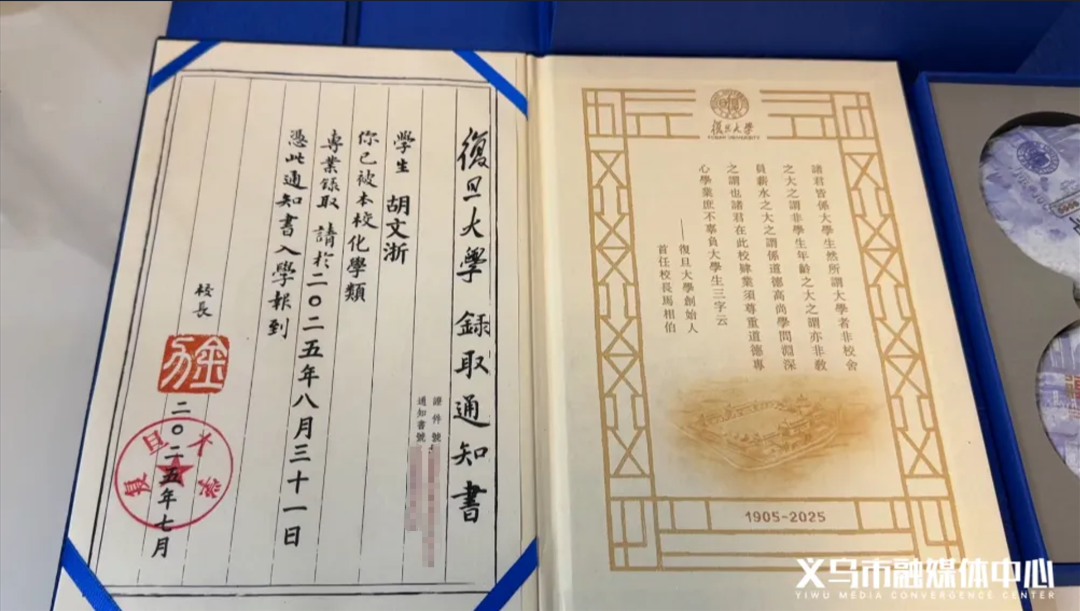 復旦大學 録取通知書
證件號:
通知書號
學生 胡文浙
你已被本校化學類
專業録取 請於二〇二五年八月三十一日
憑此通知書入學報到
校長
金力
二〇二五年七月
復旦大學
復旦大學
FUDAN UNIVERSITY
諸君皆係大學生然所謂大學者非校舍
之大之謂非學生年齡之大之謂亦非教
員薪水之大之謂係道德高尚學問淵深
之謂也諸君在此校肄業須尊重道德專
心學業庶不辜負大學生三字云
——復旦大學創始人
首任校長馬相伯
1905-2025
义乌市融媒体中心
YIWU MEDIA CONVERGENCE CENTER